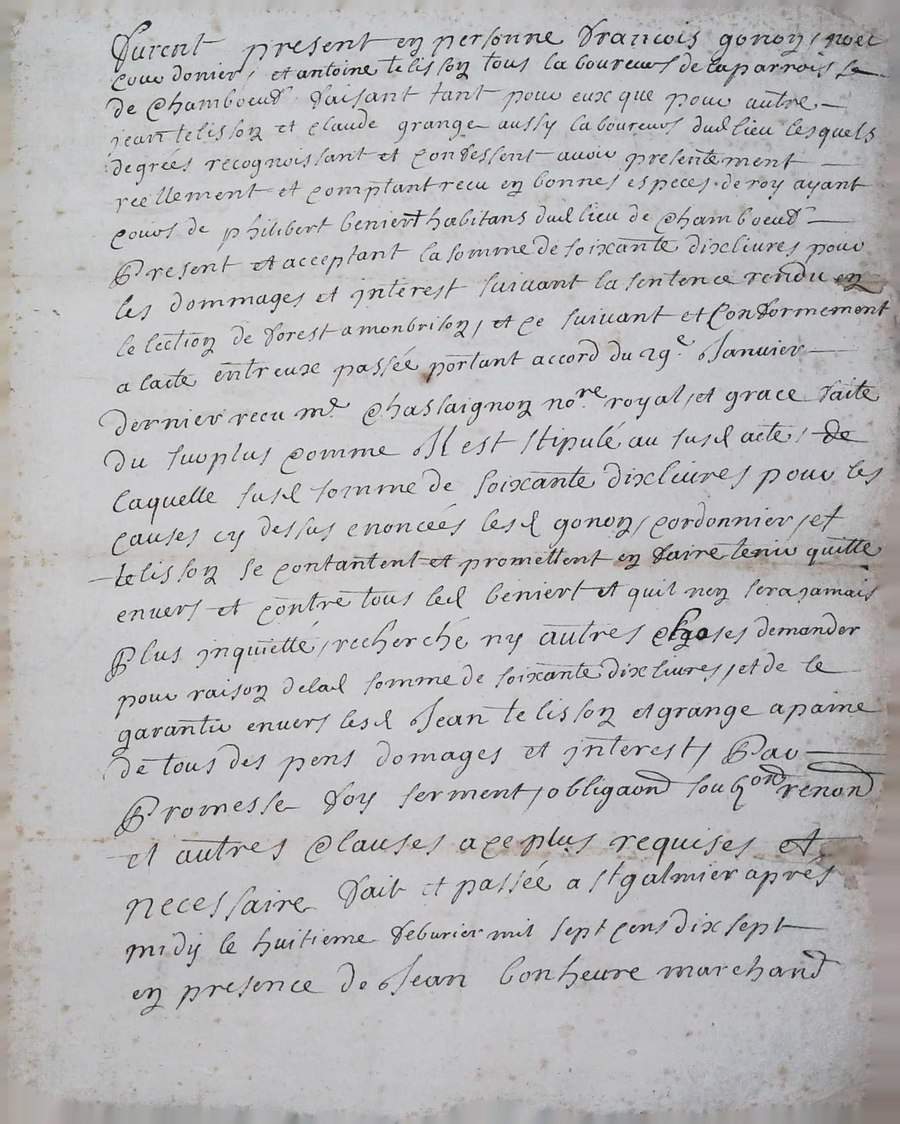 furent present en personne francois gonon, noel
courdonier, et antoine telisson tous laboureurs de la parroisse
de Chamboeuf faisant tant pour eux que pour autre
jean telisson et claude grange aussy laboureurs dud lieu lesquels
degrées recognoissant et confessent avoir presentement
reellement et comptant recu en bonnes especes de roy ayant
cours de philibert beniert habitans dud lieu de Chamboeuf
Present et acceptant la somme de soixante dix livres pour
les dommages et interest suivant la sentence rendu en
lelection de forest a monbrison, et ce suivant et Conformement
a lacte entreux passée portant accord du 29e Janvier
dernier recu me Chassaignon nore royal, et grace faite
du surplus comme Il est stipulé au susd acte, de
laquelle susd somme de soixante dix livres pour les
causes cy dessus enoncées lesd gonon, cordonnier, et
telisson se contantent et promettent en faire tenir quitte
envers et contre tous led beniert et quil nen sera jamais
Plus inquietté, recherché ny autres choses demander
pour raison de lad somme de soixante dix livres, et de le
garantir envers lesd Jean telisson et grange a paine
de tous des pens domages et interest, Par
Promesse foy serment, obligaond soubond renond
et autres Clauses a ce plus requises et
necessaire fait et passée a st galmier aprés
midy le huitieme feburier mil sept cens dix sept
en presence de Jean bonheure marchand